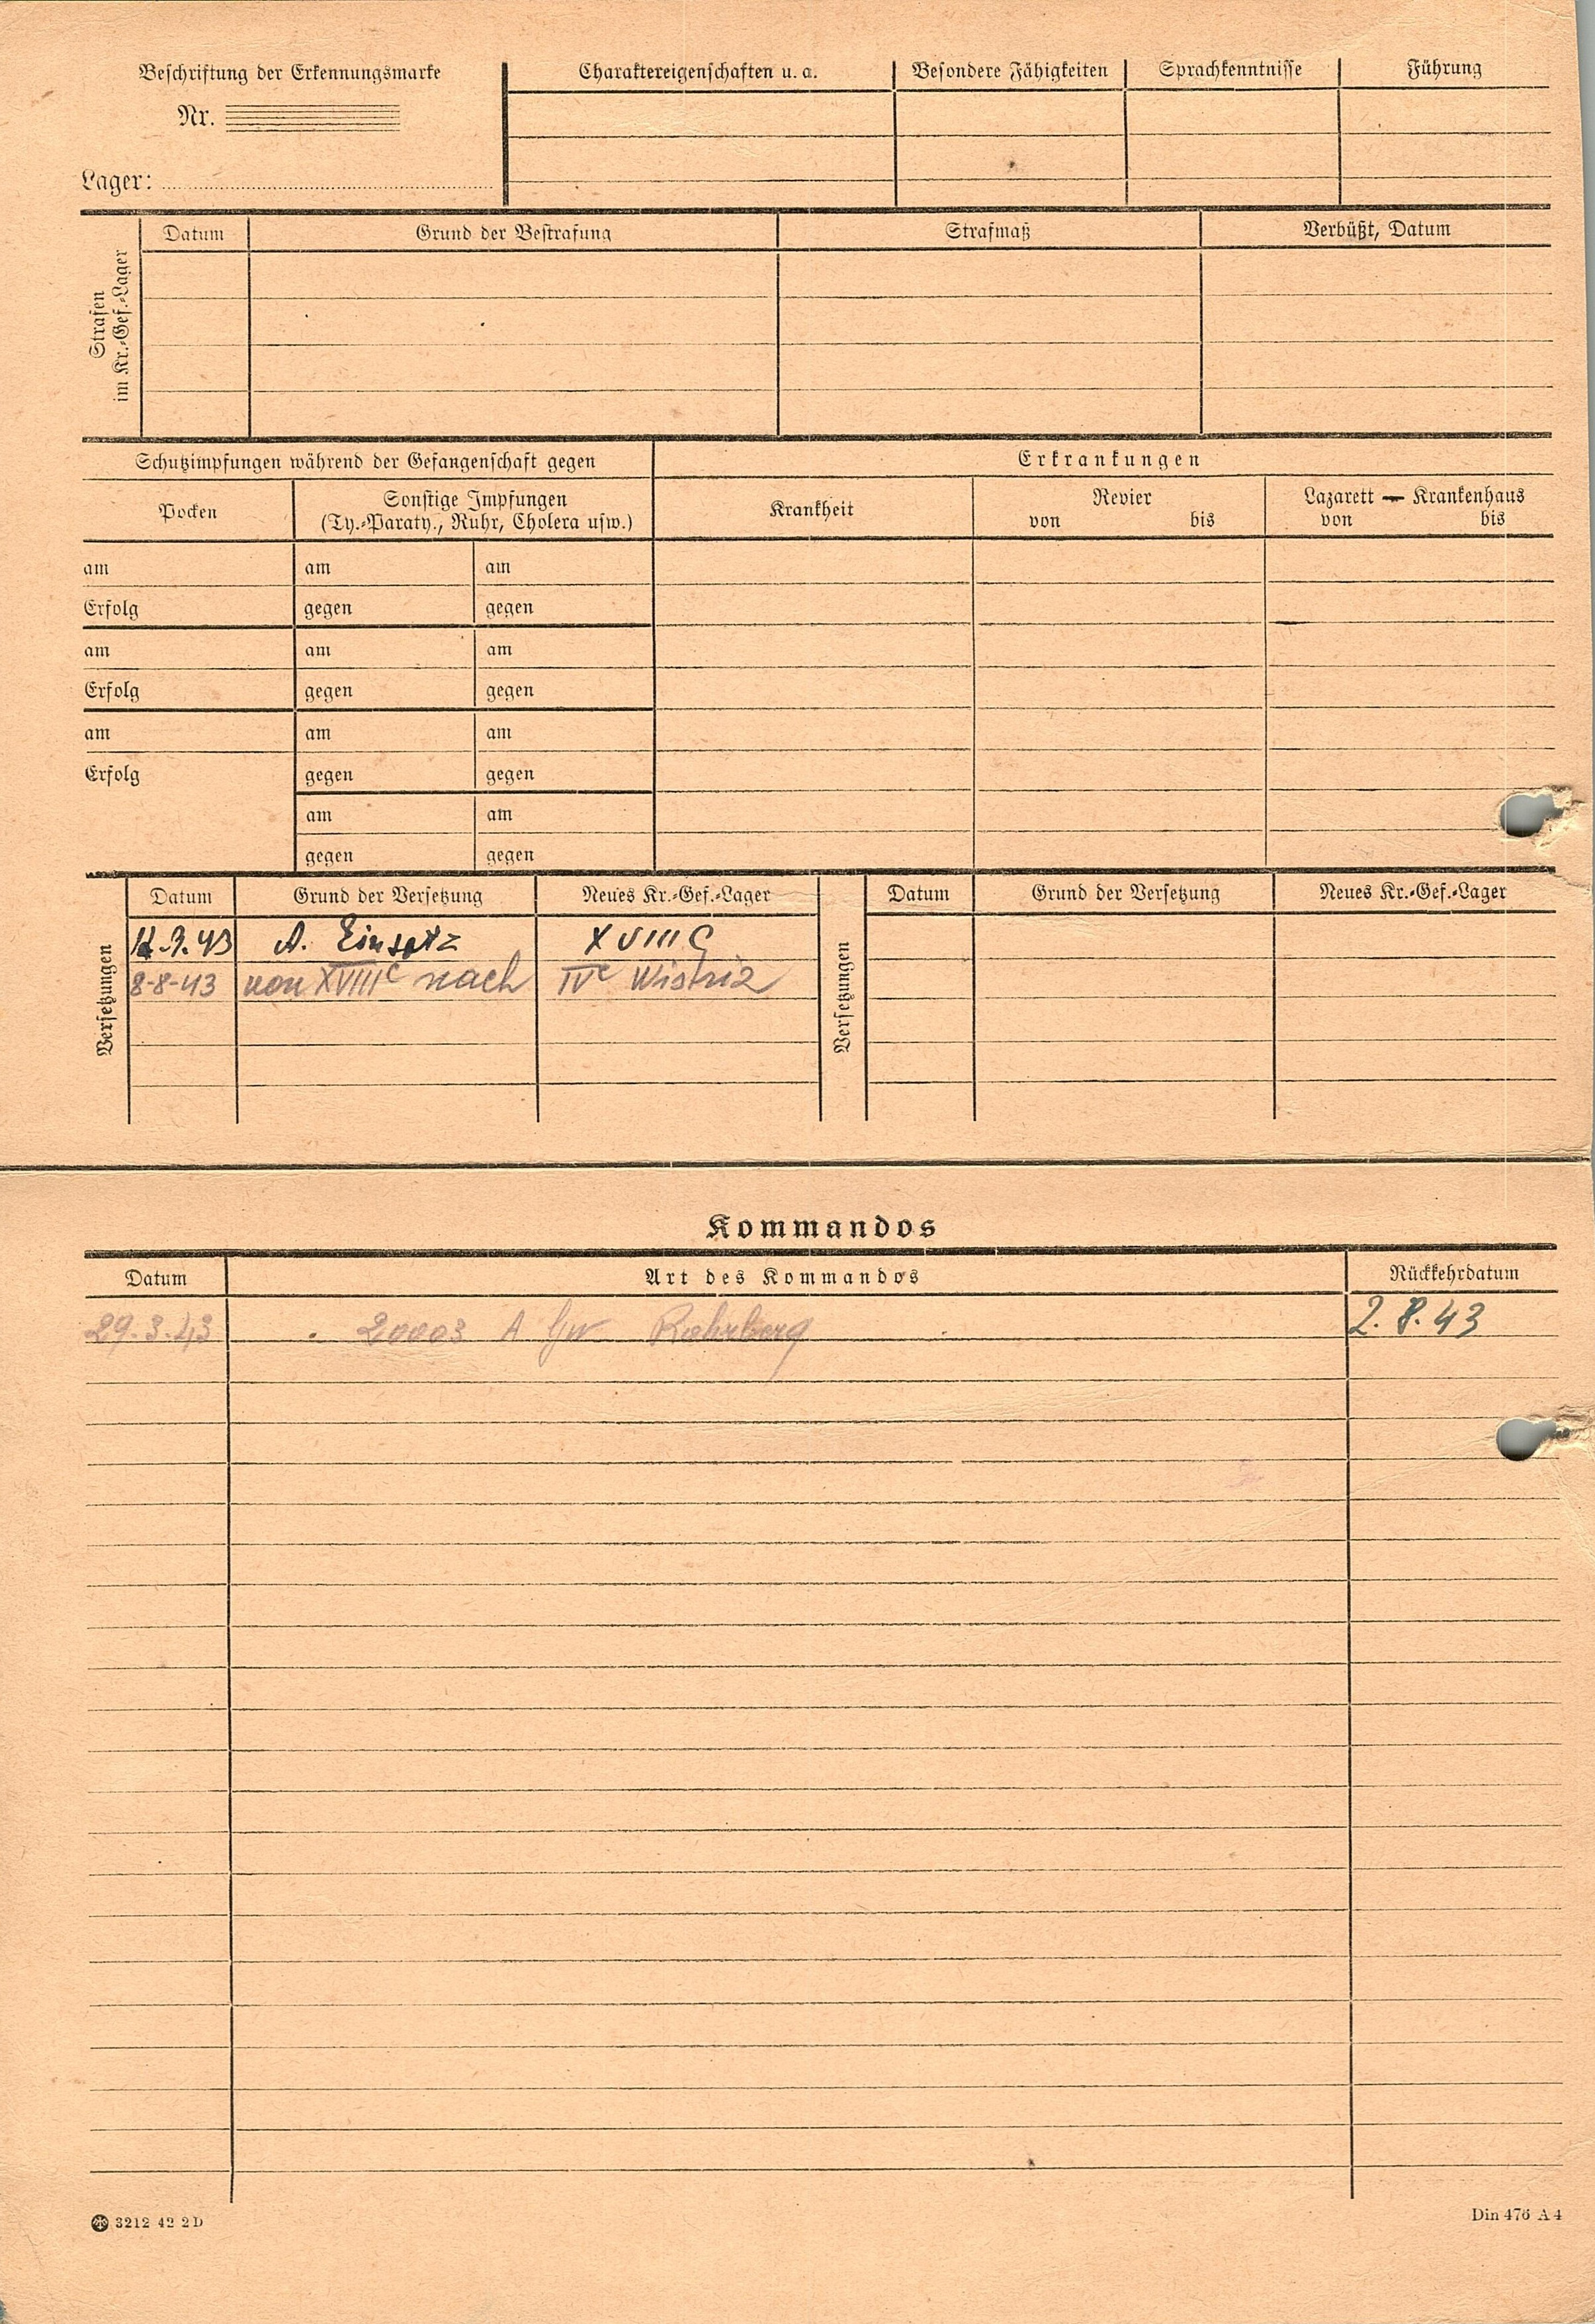 Beschriftung der Erkennungsmarke
Nr.
Lager:
Charaktereigenschaften u. a.
Besondere Fähigkeiten
Sprachkenntnisse
Führung
Strafen
im Kr.-Gef.-Lager
Datum
Grund der Bestrafung
Strafmaß
Verbüßt, Datum
Schutzimpfungen während der Gefangenschaft gegen
Erkrankungen
Pocken
Sonstige Impfungen
(Ty.-Paraty., Ruhr, Cholera usw.)
Krankheit
Revier
von bis
Lazarett — Krankenhaus
von bis
am am am
Erfolg gegen gegen
am am am
Erfolg gegen gegen
am am am
Erfolg gegen gegen
am am
gegen gegen
Versetzungen
Datum Grund der Versetzung Neues Kr.-Gef.-Lager
A. Einsatz XVIII C
8-8-43 von XVIII C nach IV C Wistriz
Versetzungen
Datum Grund der Versetzung Neues Kr.-Gef.-Lager
Kommandos
Datum Art des Kommandos Rückkehrdatum
29.3.43 20003 A 2.8.43
3212 42 2D
Din 476 A4